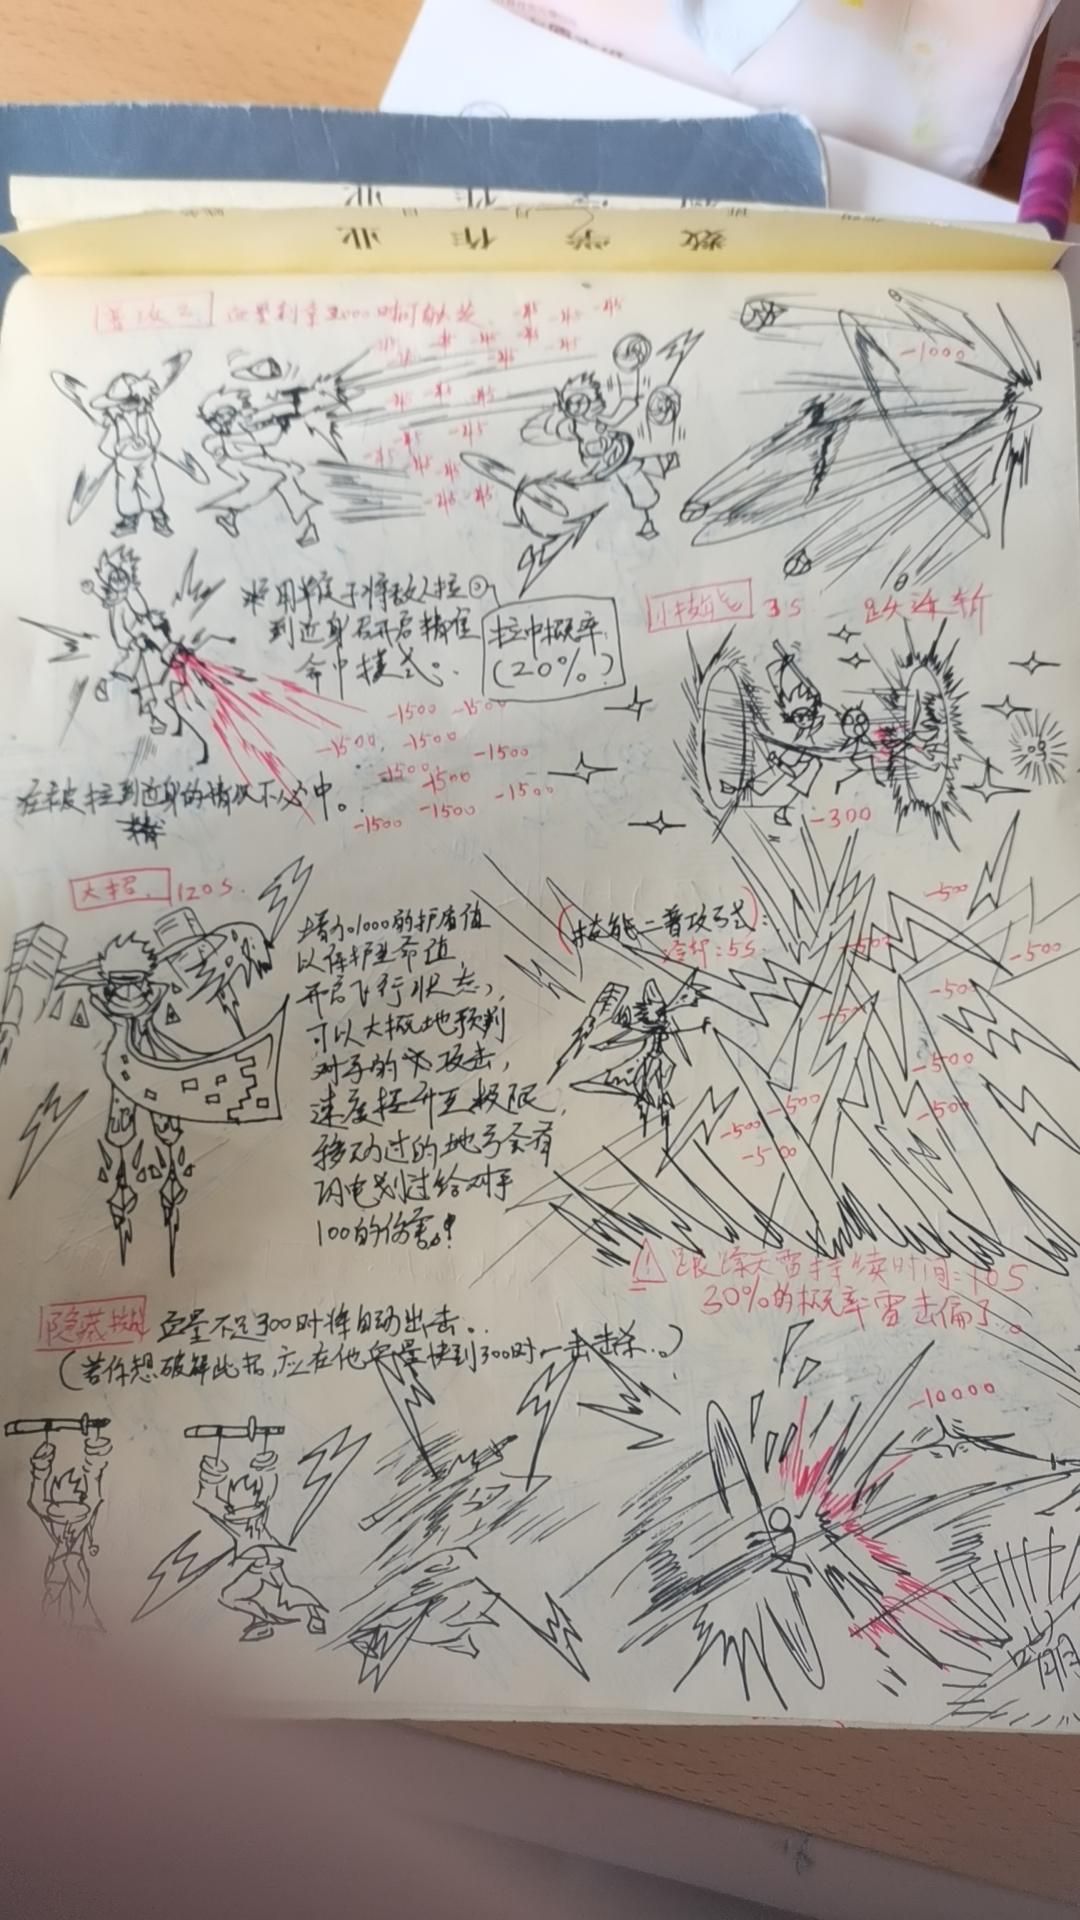 数 学 作 业
普攻二 血量剩至2000时可触发
-45 -45 -45
-45 -45 -45 -45 -45
-45 -45
-45 -45 -45
-45 -45
-45 -45 -45
-45 -45
-1000
将用单底子将敌人拉
到近身后开启精准
命中模式。
拉中概率
(20%)
小技能 3S
-300
-1500 -1500
-1500 -1500 -1500
-1500 -1500 -1500
-1500 -1500
在被拉到近身的情况下必中。
大招 120S.
增加1000的护盾值
以保护生命值,
开启飞行状态,
可以大概地预判
对手的攻击,
速度提升至极限,
移动过的地方会有
闪电划过给对手
100的伤害!
(技能二普攻方式):
冷却:5S
-500
-500 -500
-500 -500
-500
-500 -500
-500
-500
持续时间:10S
30%的概率雷击偏了。
隐藏招 血量不足300时将自动出击。
(若你想破解此招,应在他血量快到300时一击击杀。)
-10000
嘣